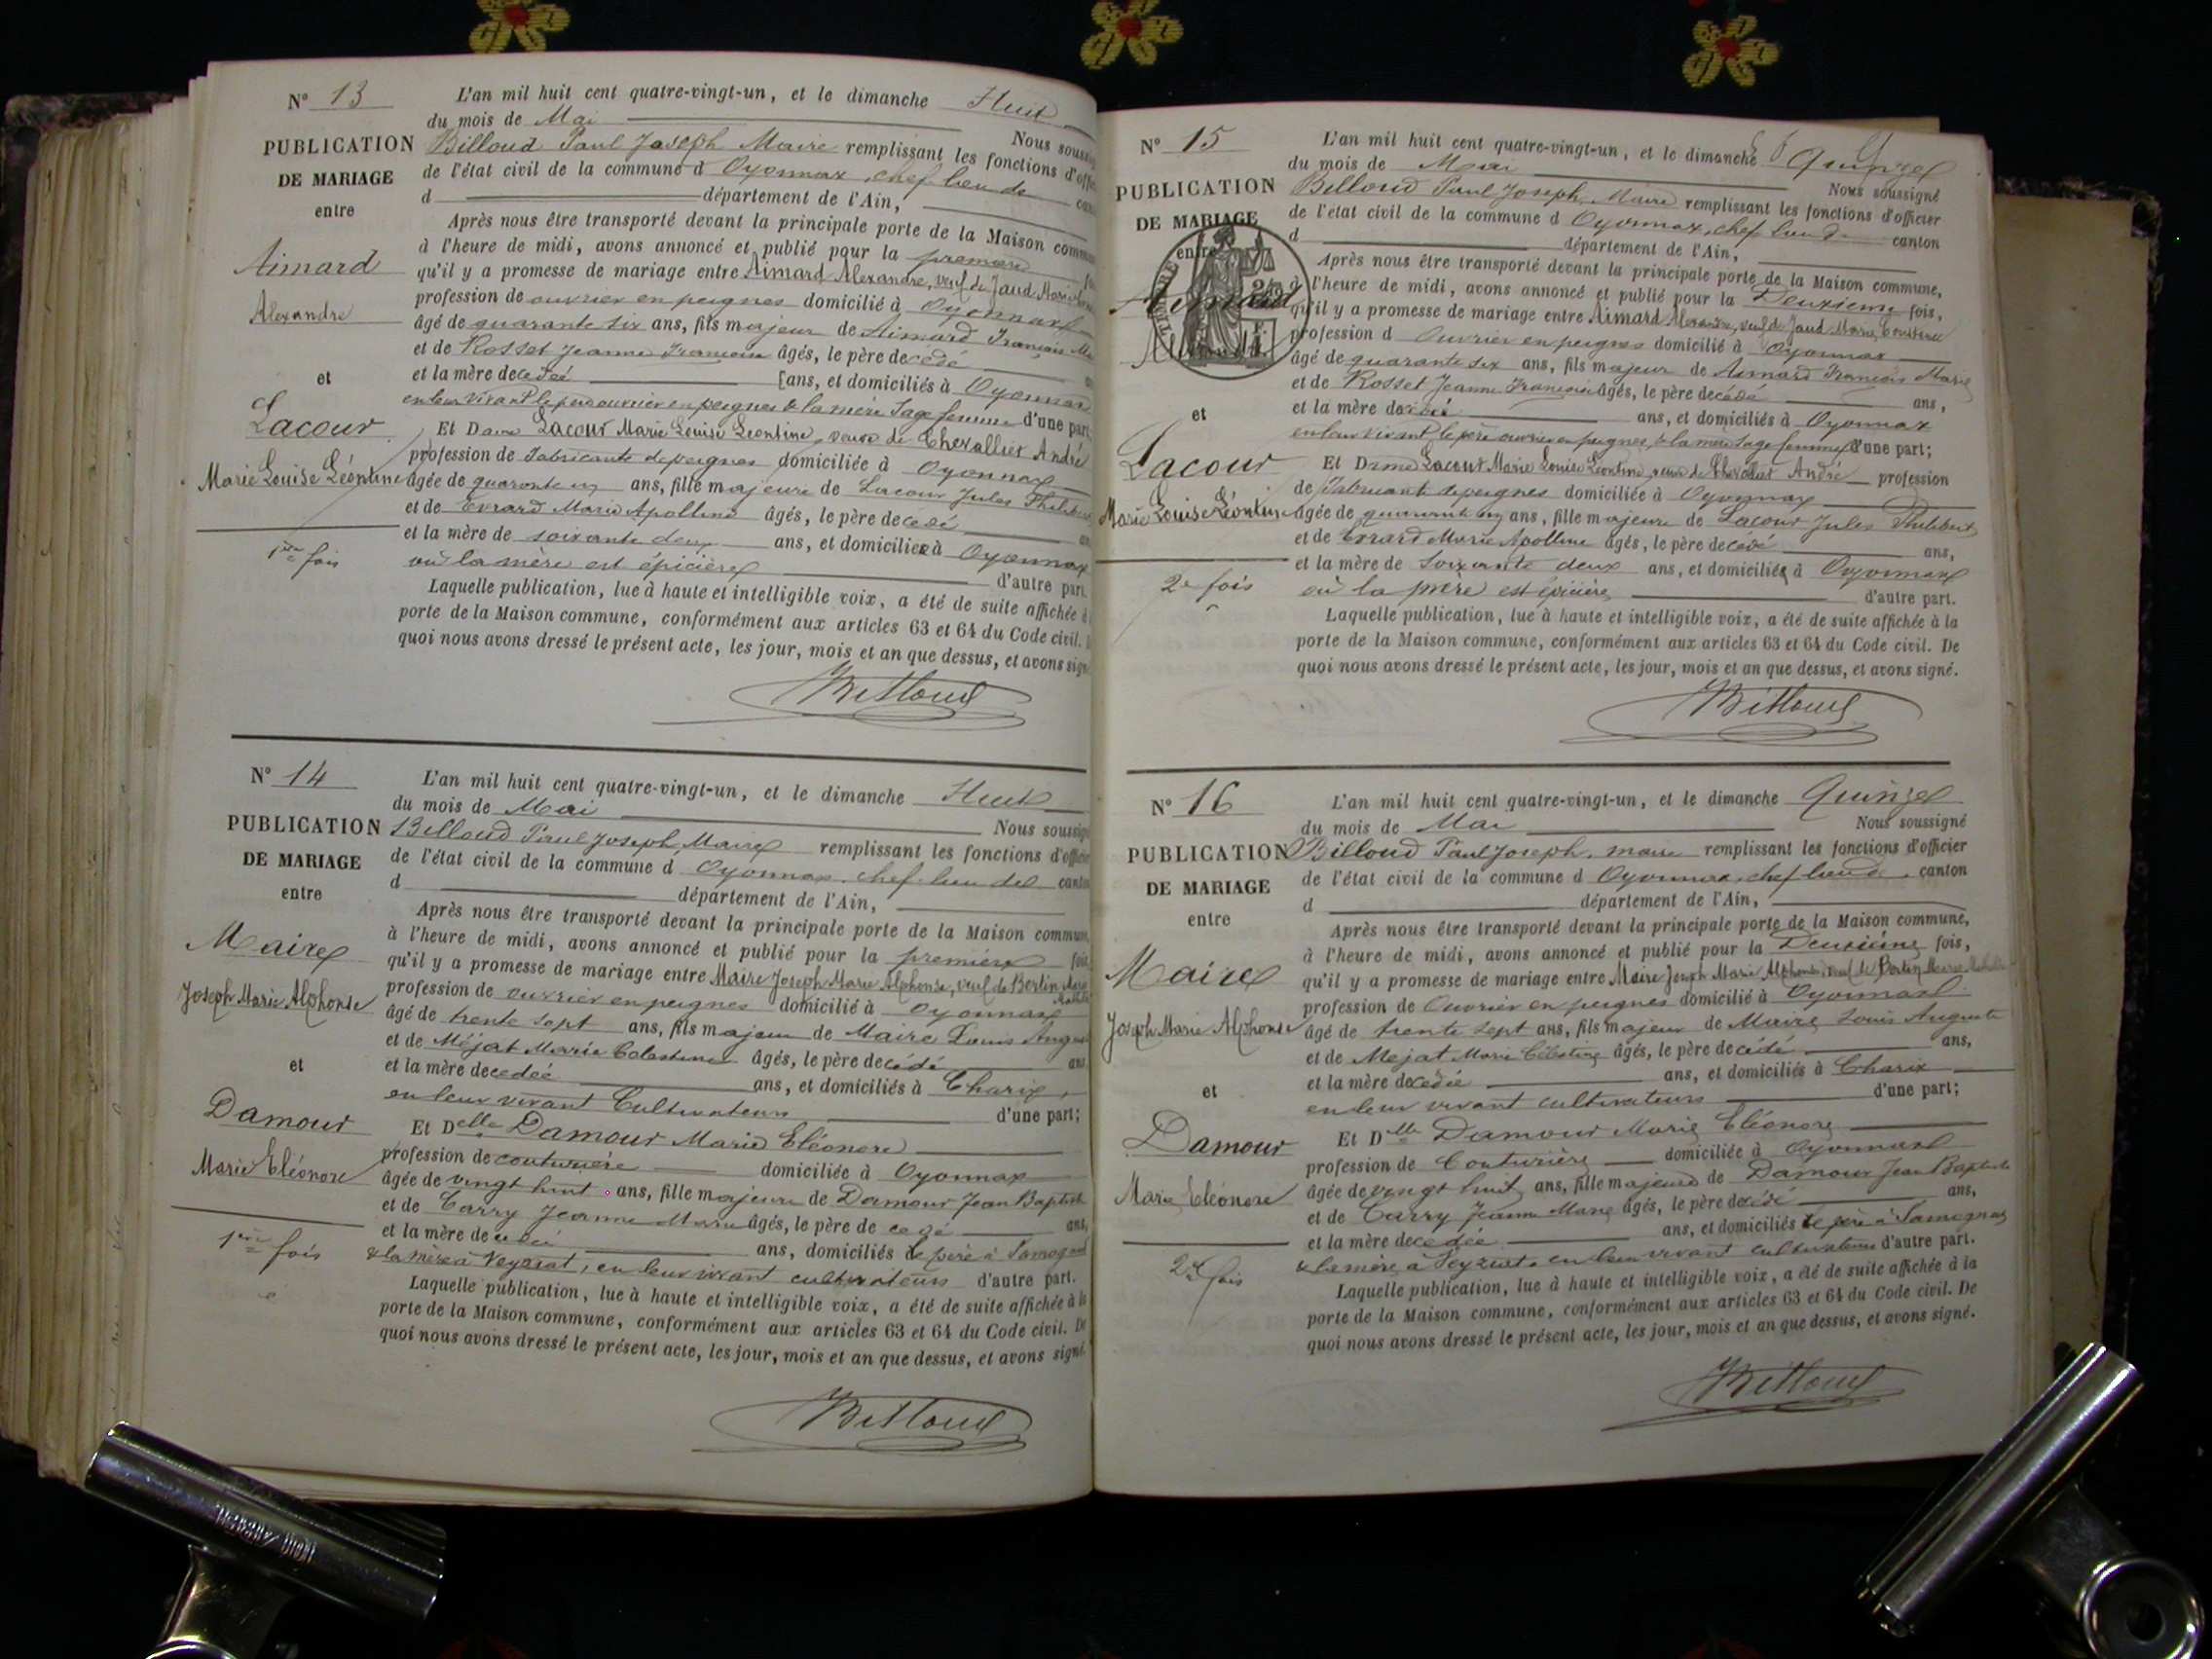 N° 13
PUBLICATION
DE MARIAGE
entre
Aimard
Alexandre
et
Lacour
Marie Louise Léontine
1ère fois
L'an mil huit cent quatre-vingt-un, et le dimanche Huit
du mois de Mai Nous
Billoud Paul Joseph Maire remplissant les fonctions
de l'état civil de la commune d Oyonnax, chef lieu de
d département de l'Ain,
Après nous être transporté devant la principale porte de la Maison
à l'heure de midi, avons annoncé et publié pour la première
qu'il y a promesse de mariage entre Aimard Alexandre, veuf de Jaud Marie
profession de ouvrier en peignes domicilié à Oyonnax
âgé de quarante six ans, fils majeur de Aimard François
et de Rosset Jeanne Françoise âgés, le père decédé
et la mère decedeé [ans, et domiciliés à Oyonnax
en leur vivant le père ouvrier en peignes & la mère Sage femme d'une part
Et Dame Lacour Marie Louise Léontine, veuve de Chevallier André
profession de Fabricante de peignes domiciliée à Oyonnax
âgée de quarante un ans, fille majeure de Lacour Jules Philibert
et de Evrard Marie Apolline âgés, le père decédé
et la mère de soixante deux ans, et domiciliés à Oyonnax
où la mère est épicière d'autre part.
Laquelle publication, lue à haute et intelligible voix, a été de suite affichée à
porte de la Maison commune, conformément aux articles 63 et 64 du Code civil.
quoi nous avons dressé le présent acte, les jour, mois et an que dessus, et avons
Billoud
N° 14
PUBLICATION
DE MARIAGE
entre
Maire
Joseph Marie Alphonse
et
Damour
Marie Eléonore
1ère fois
L'an mil huit cent quatre-vingt-un, et le dimanche Huit
du mois de Mai Nous
Billoud Paul Joseph, Maire remplissant les fonctions
de l'état civil de la commune d Oyonnax, chef lieu de canton
d département de l'Ain,
Après nous être transporté devant la principale porte de la Maison
à l'heure de midi, avons annoncé et publié pour la première fois,
qu'il y a promesse de mariage entre Maire Joseph Marie Alphonse, veuf de Bertin Marie
profession de ouvrier en peignes domicilié à Oyonnax
âgé de trente sept ans, fils majeur de Maire Louis
et de Méjat Marie Celestine âgés, le père decédé ans,
et la mère decedeé ans, et domiciliés à Charix,
en leur vivant Cultivateurs d'une part;
Et Delle Damour Marie Eléonore
profession de couturière domiciliée à Oyonnax
âgée de vingt huit ans, fille majeure de Damour Jean Baptiste
et de Carry Jeanne Marie âgés, le père de cedé ans,
et la mère de ans, domiciliés le père à
& la mère à Veyziat, en leur vivant cultivateurs d'autre part.
Laquelle publication, lue à haute et intelligible voix, a été de suite affichée à la
porte de la Maison commune, conformément aux articles 63 et 64 du Code civil. De
quoi nous avons dressé le présent acte, les jour, mois et an que dessus, et avons signé.
Billoud
N° 15
PUBLICATION
DE MARIAGE
entre
Aimard
et
Lacour
Marie Louise Léontine
2e fois
L'an mil huit cent quatre-vingt-un, et le dimanche Quinze
du mois de Mai Nous soussigné
Billoud Paul Joseph, Maire remplissant les fonctions d'officier
de l'état civil de la commune d Oyonnax, chef lieu de canton
d département de l'Ain,
Après nous être transporté devant la principale porte de la Maison commune,
à l'heure de midi, avons annoncé et publié pour la Deuxième fois,
qu'il y a promesse de mariage entre Aimard Alexandre, veuf de Jaud Marie
profession d Ouvrier en peignes domicilié à Oyonnax
âgé de quarante six ans, fils majeur de Aimard François Marie
et de Rosset Jeanne Françoise âgés, le père decédé ans,
et la mère decedée ans, et domiciliés à Oyonnax
en leur vivant le père ouvrier en peignes, & la mère sage femme d'une part;
Et Dame Lacour Marie Louise Léontine, veuve de Chevallier André profession
de Fabricante de peignes domiciliée à Oyonnax
âgée de quarante un ans, fille majeure de Lacour Jules Philibert
et de Evrard Marie Apolline âgés, le père decédé ans,
et la mère de Soixante deux ans, et domiciliés à Oyonnax
où la mère est épicière d'autre part.
Laquelle publication, lue à haute et intelligible voix, a été de suite affichée à la
porte de la Maison commune, conformément aux articles 63 et 64 du Code civil. De
quoi nous avons dressé le présent acte, les jour, mois et an que dessus, et avons signé.
Billoud
N° 16
PUBLICATION
DE MARIAGE
entre
Maire
Joseph Marie Alphonse
et
Damour
Marie Eléonore
2e fois
L'an mil huit cent quatre-vingt-un, et le dimanche Quinze
du mois de Mai Nous soussigné
Billoud Paul Joseph, maire remplissant les fonctions d'officier
de l'état civil de la commune d Oyonnax, chef lieu de canton
d département de l'Ain,
Après nous être transporté devant la principale porte de la Maison commune,
à l'heure de midi, avons annoncé et publié pour la Deuxième fois,
qu'il y a promesse de mariage entre Maire Joseph Marie Alphonse, veuf de Bertin Marie
profession de Ouvrier en peignes domicilié à Oyonnax
âgé de trente sept ans, fils majeur de Maire Louis Auguste
et de Mejat Marie Célestine âgés, le père decédé ans,
et la mère decedée ans, et domiciliés à Charix
en leur vivant cultivateurs d'une part;
Et Dlle Damour Marie Eléonore
profession de Couturière domiciliée à Oyonnax
âgée de vingt huit ans, fille majeure de Damour Jean Baptiste
et de Carry Jeanne Marie âgés, le père decédé ans,
et la mère decedée ans, et domiciliés le père à
& la mère à Veyziat, en leur vivant cultivateurs d'autre part.
Laquelle publication, lue à haute et intelligible voix, a été de suite affichée à la
porte de la Maison commune, conformément aux articles 63 et 64 du Code civil. De
quoi nous avons dressé le présent acte, les jour, mois et an que dessus, et avons signé.
Billoud